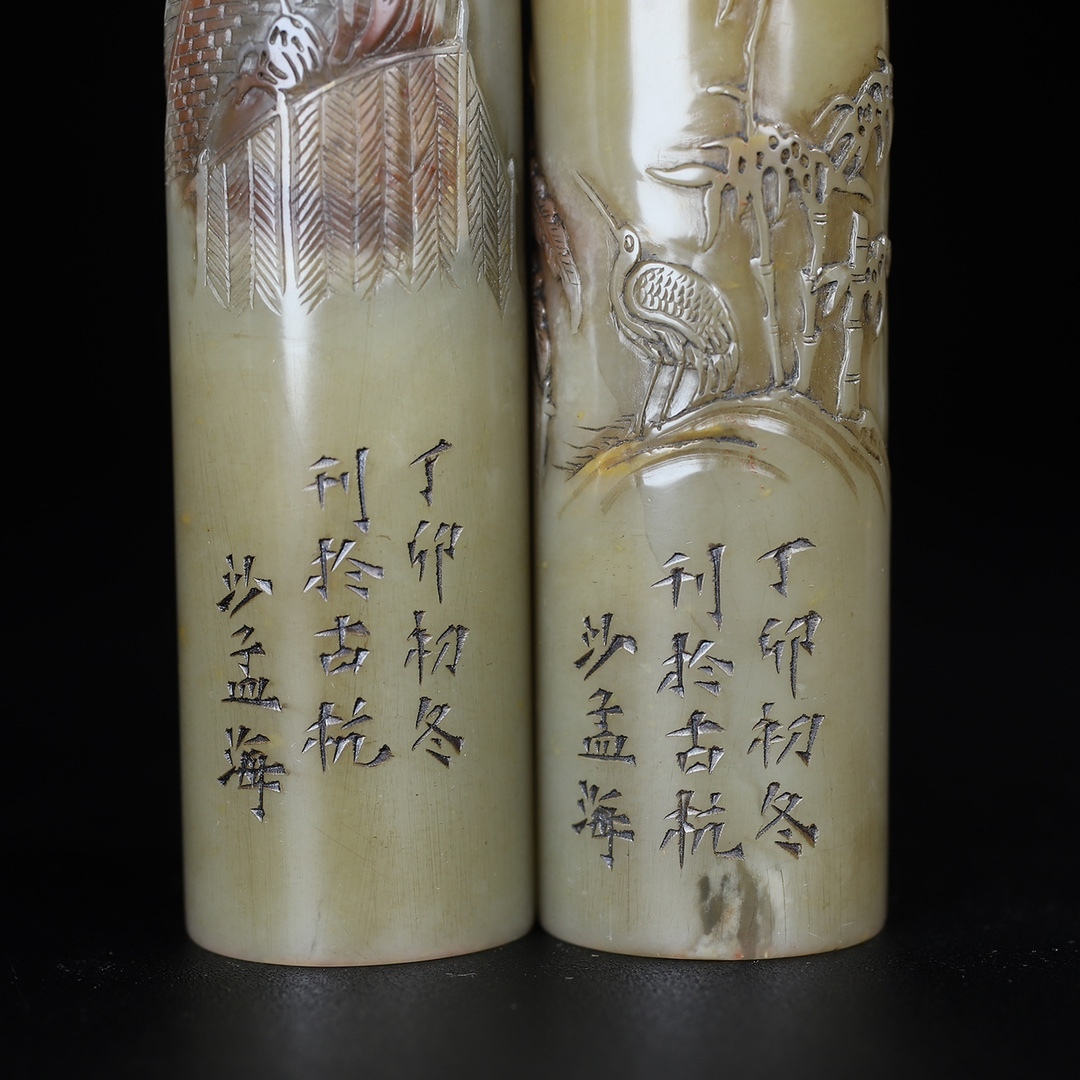 丁卯初冬
刊於古杭
沙孟海
丁卯初冬
刊於古杭
沙孟海